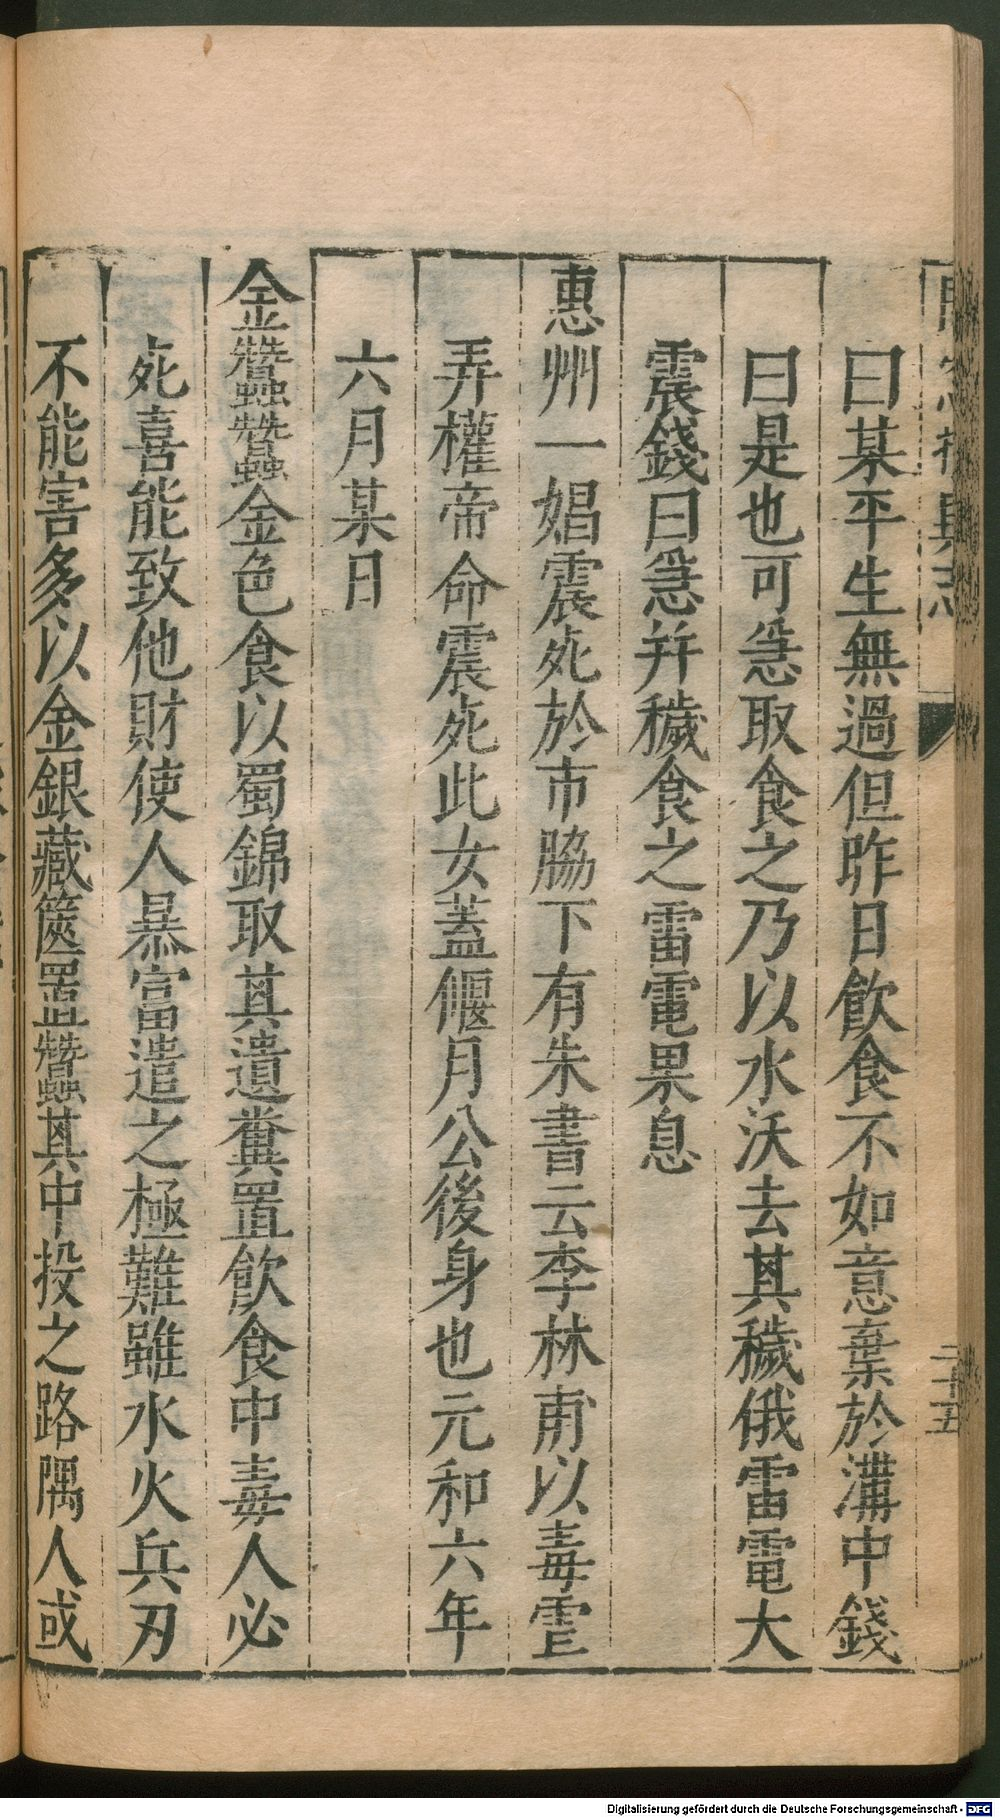 曰某平生無過但昨日飲食不如意棄於溝中錢
曰是也可急取食之乃以水沃去其穢俄雷電大
震錢曰急并穢食之雷電果息
惠州一娼震死於市脇下有朱書云李林甫以毒虐
弄權帝命震死此女蓋偃月公後身也元和六年
六月某日
金蠶蠶金色食以蜀錦取其遺糞置飲食中毒人必
死喜能致他財使人暴富遣之極難雖水火兵刃
不能害多以金銀藏篋置蠶其中投之路隅人或
二十五
Digitalisierung gefördert durch die Deutsche Forschungsgemeinschaft - DFG